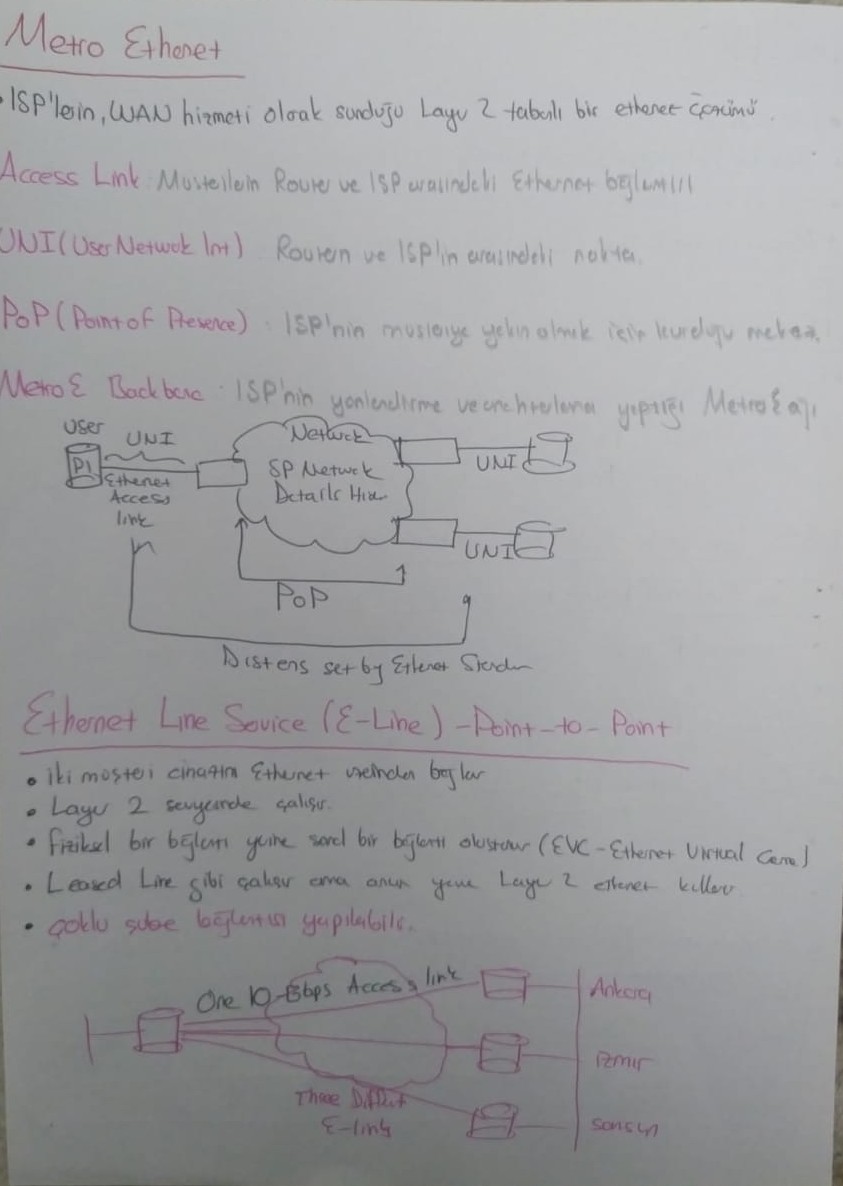 Metro Ethenet
• ISP'lerin, WAN hizmeti olarak sunduğu Layer 2 tabanlı bir ethernet çözümü.
Access Link: Müşterilerin Router ve ISP arasındeki Ethernet bağlantısı
UNI (User Netwok Int) : Routerın ve ISP'in arasındeki nokta.
PoP (Point of Presence) : ISP'nin müşteriye yakın olmak için kurduğu merkez.
Metro E Backbone : ISP'nin yönlendirme ve anahtarlama yaptığı Metro E ağı
User
UNI
Network
SP Network
Details Hidden
UNI
Ethernet
Access
link
UNI
PoP
Distens set by Ethernet Standar
Ethernet Line Service (E-Line) - Point-to-Point
• iki müşteri cihazını Ethernet üzerinden bağlar
• Layer 2 seviyesinde çalışır.
• fiziksel bir bağlantı yerine sanal bir bağlantı oluşturur (EVC - Ethernet Virtual Cana)
• Leased Line gibi çalışır ama onun yerine Layer 2 ethernet kullanır
• Çoklu şube bağlantısı yapılabilir.
One 10-Gbps Access link
Ankara
izmir
Three Diffret
E-link
samsun